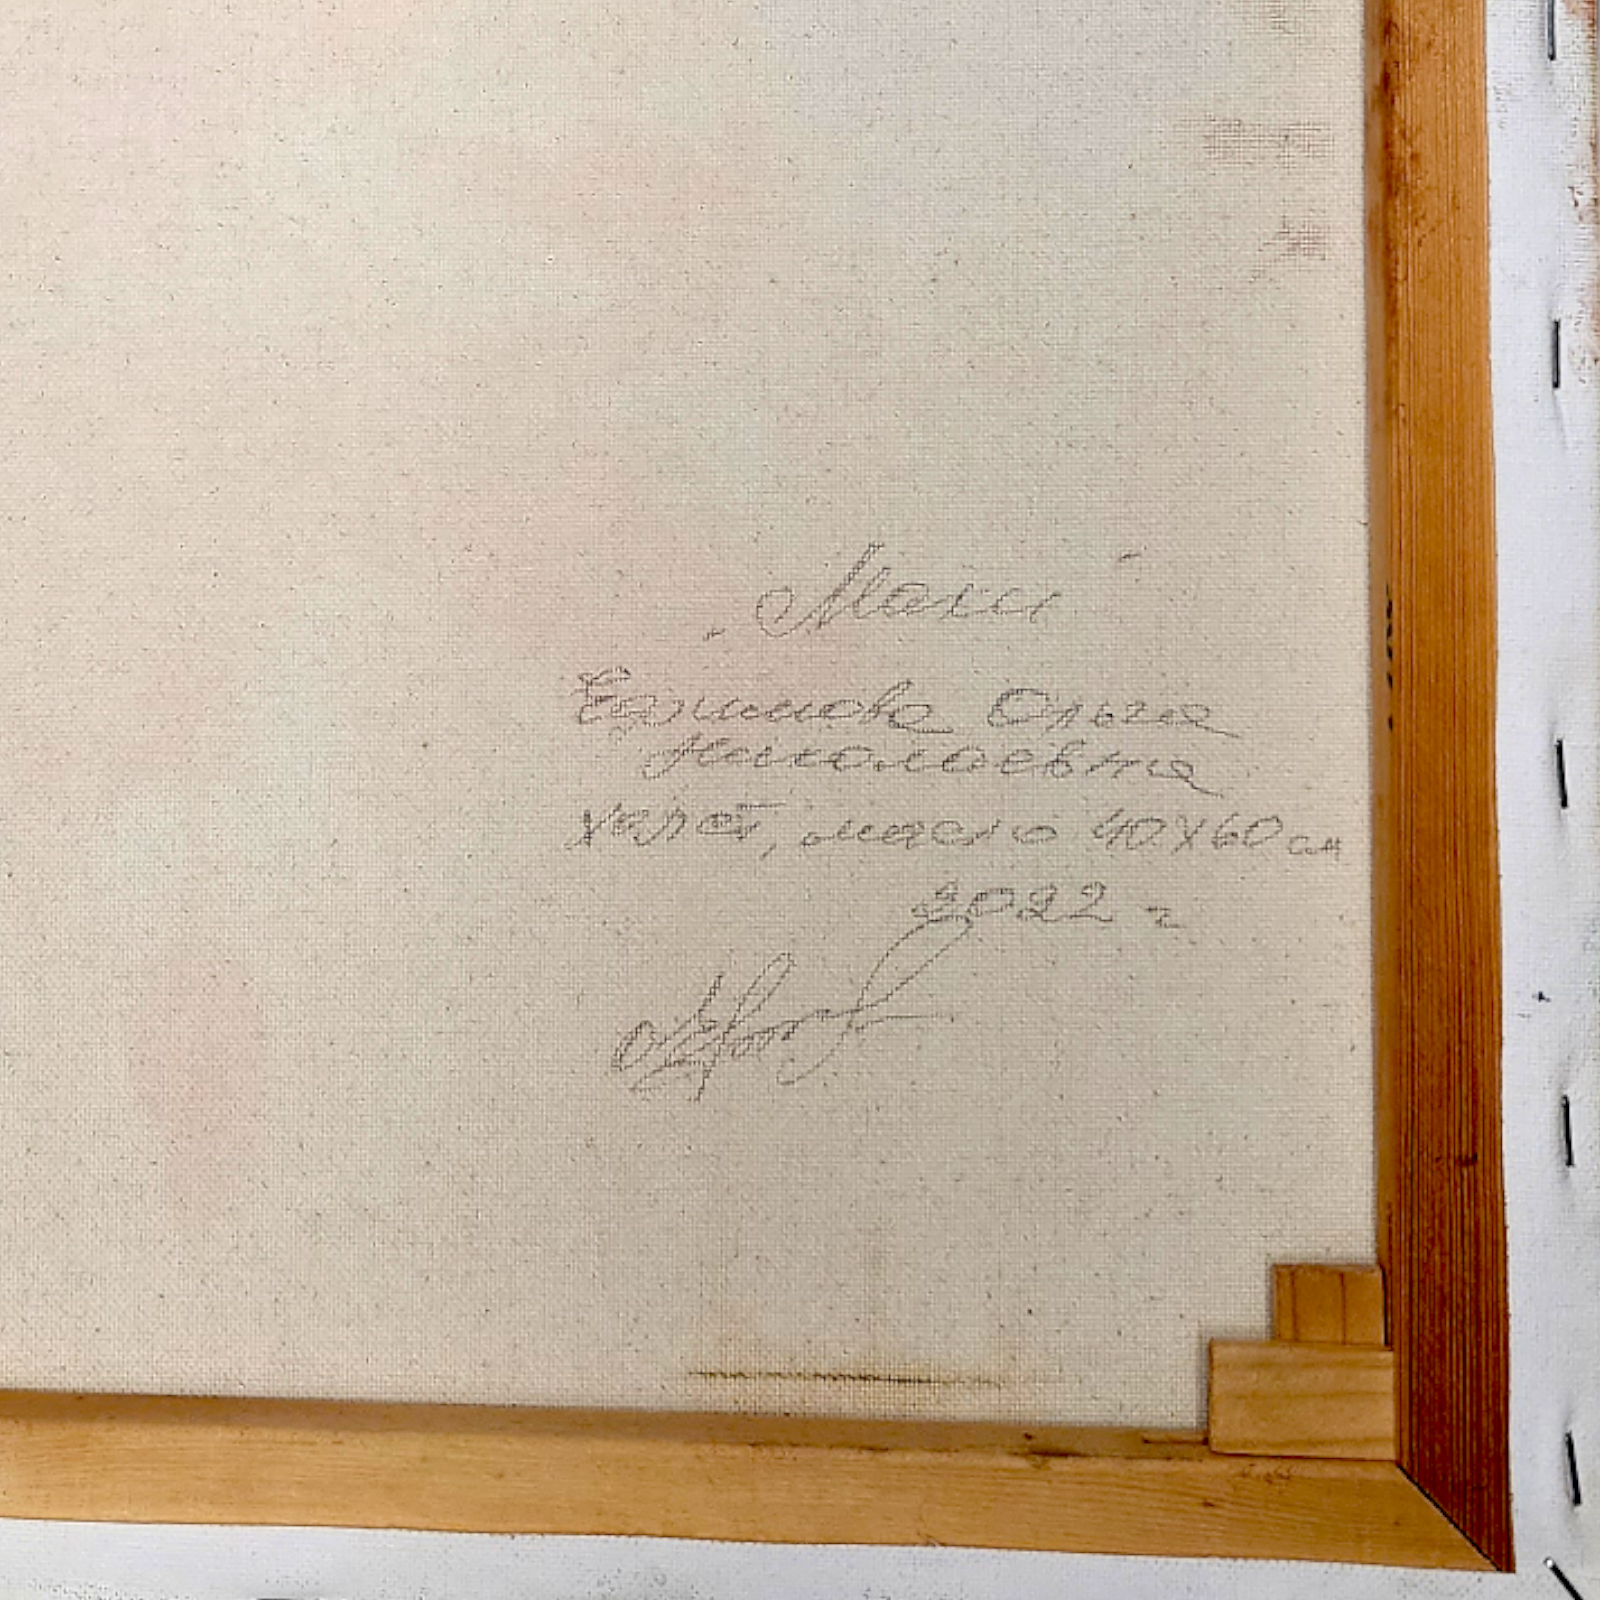 „Маки"
Ефимова Ольга
Николаевна
холст, масло 40х60 см
2022 г